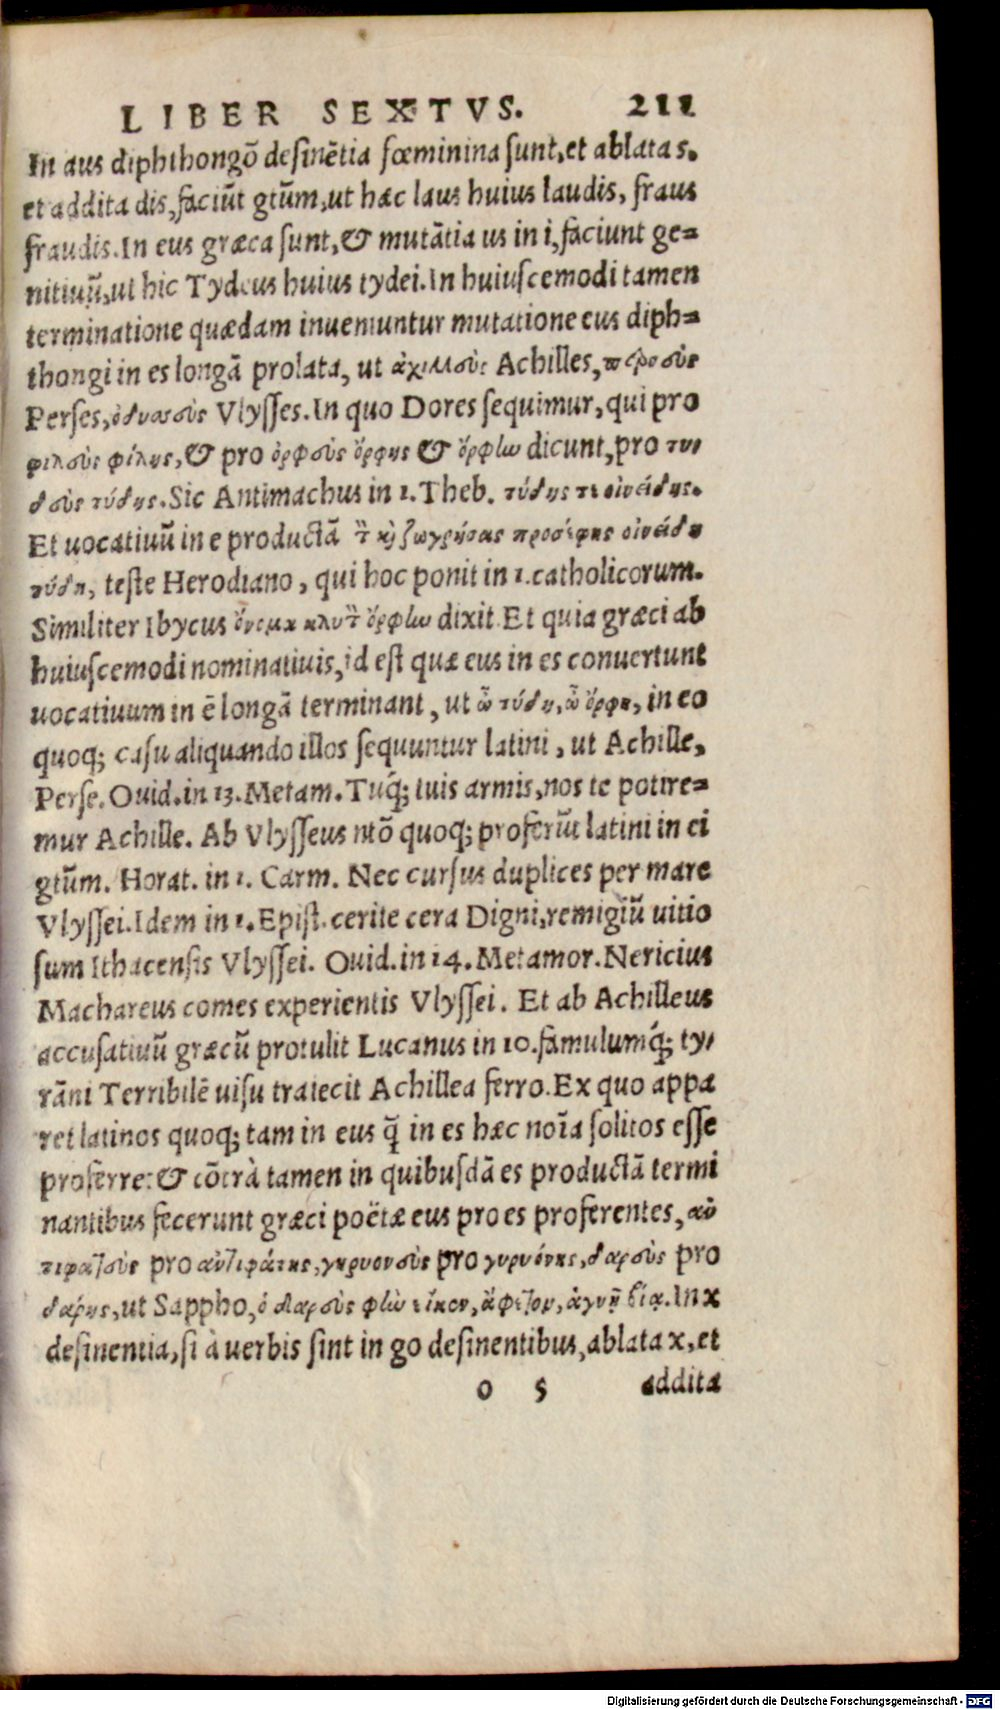 LIBER SEXTVS. 211
In aus diphthongō desinētia fœminina sunt, et ablata s.
et addita dis, faciūt gtūm, ut hæc laus huius laudis, fraus
fraudis. In eus græca sunt, & mutātia us in i, faciunt ge=
nitiuū, ut hic Tydeus huius tydei. In huiuscemodi tamen
terminatione quædam inueniuntur mutatione eus diph=
thongi in es longā prolata, ut ἀχιλλοὺς Achilles, περσοὺς
Perses, ὀδυασοὺς Vlysses. In quo Dores sequimur, qui pro
φιλοὺς φίλης, & pro ὀρφοὺς ὄρφης & ὄρφίω dicunt, pro τυ-
δοὺς τύδης. Sic Antimachus in 1. Theb. τύδης τε οἰνείδης.
Et uocatiuū in e productā ζωγρήσας προσέφης οἰνείδη
τύδη, teste Herodiano, qui hoc ponit in 1. catholicorum.
Similiter Ibycus ὄνομα κλυτ ὄρφίω dixit. Et quia græci ab
huiuscemodi nominatiuis, id est quæ eus in es conuertunt
uocatiuum in ē longā terminant, ut ὦ τύδη, ὦ ὄρφη, in eo
quoq; casu aliquando illos sequuntur latini, ut Achille,
Perse. Ouid. in 13. Metam. Tuq́; tuis armis, nos te potire=
mur Achille. Ab Vlysseus ntō quoq; proferūt latini in ei
gtūm. Horat. in 1. Carm. Nec cursus duplices per mare
Vlyssei. Idem in 1. Epist. cerite cera Digni, remigiū uitio
sum Ithacensis Vlyssei. Ouid. in 14. Metamor. Nericius
Machareus comes experientis Vlyssei. Et ab Achilleus
accusatiuū græcū protulit Lucanus in 10. famulumq́; ty-
rāni Terribilē uisu traiecit Achillea ferro. Ex quo appa
ret latinos quoq; tam in eus q̄ in es hæc noīa solitos esse
proferre: & cōtrà tamen in quibusdā es productā termi
nantibus fecerunt græci poëtæ eus pro es proferentes, ἀν
τιφατοὺς pro ἀντιφάτης, γηρυονοὺς pro γυρυόνης, δαροὺς pro
δαρής, ut Sappho, ὁ δαροὺς In x
desinentia, si à uerbis sint in go desinentibus, ablata x, et
o 5 addita
Digitalisierung gefördert durch die Deutsche Forschungsgemeinschaft - DFG